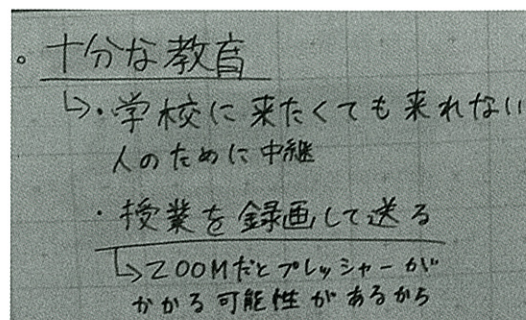 。十分な教育
↳・学校に来たくても来れない
人のために中継
・授業を録画して送る
↳ZOOMだとプレッシャーが
かかる可能性があるから